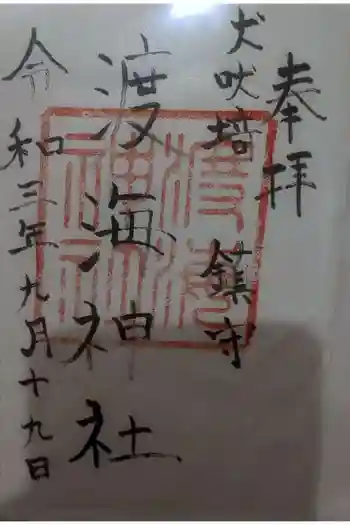 奉拝
犬吠埼 鎮守
渡海神社
令和三年九月十九日
渡海
神社